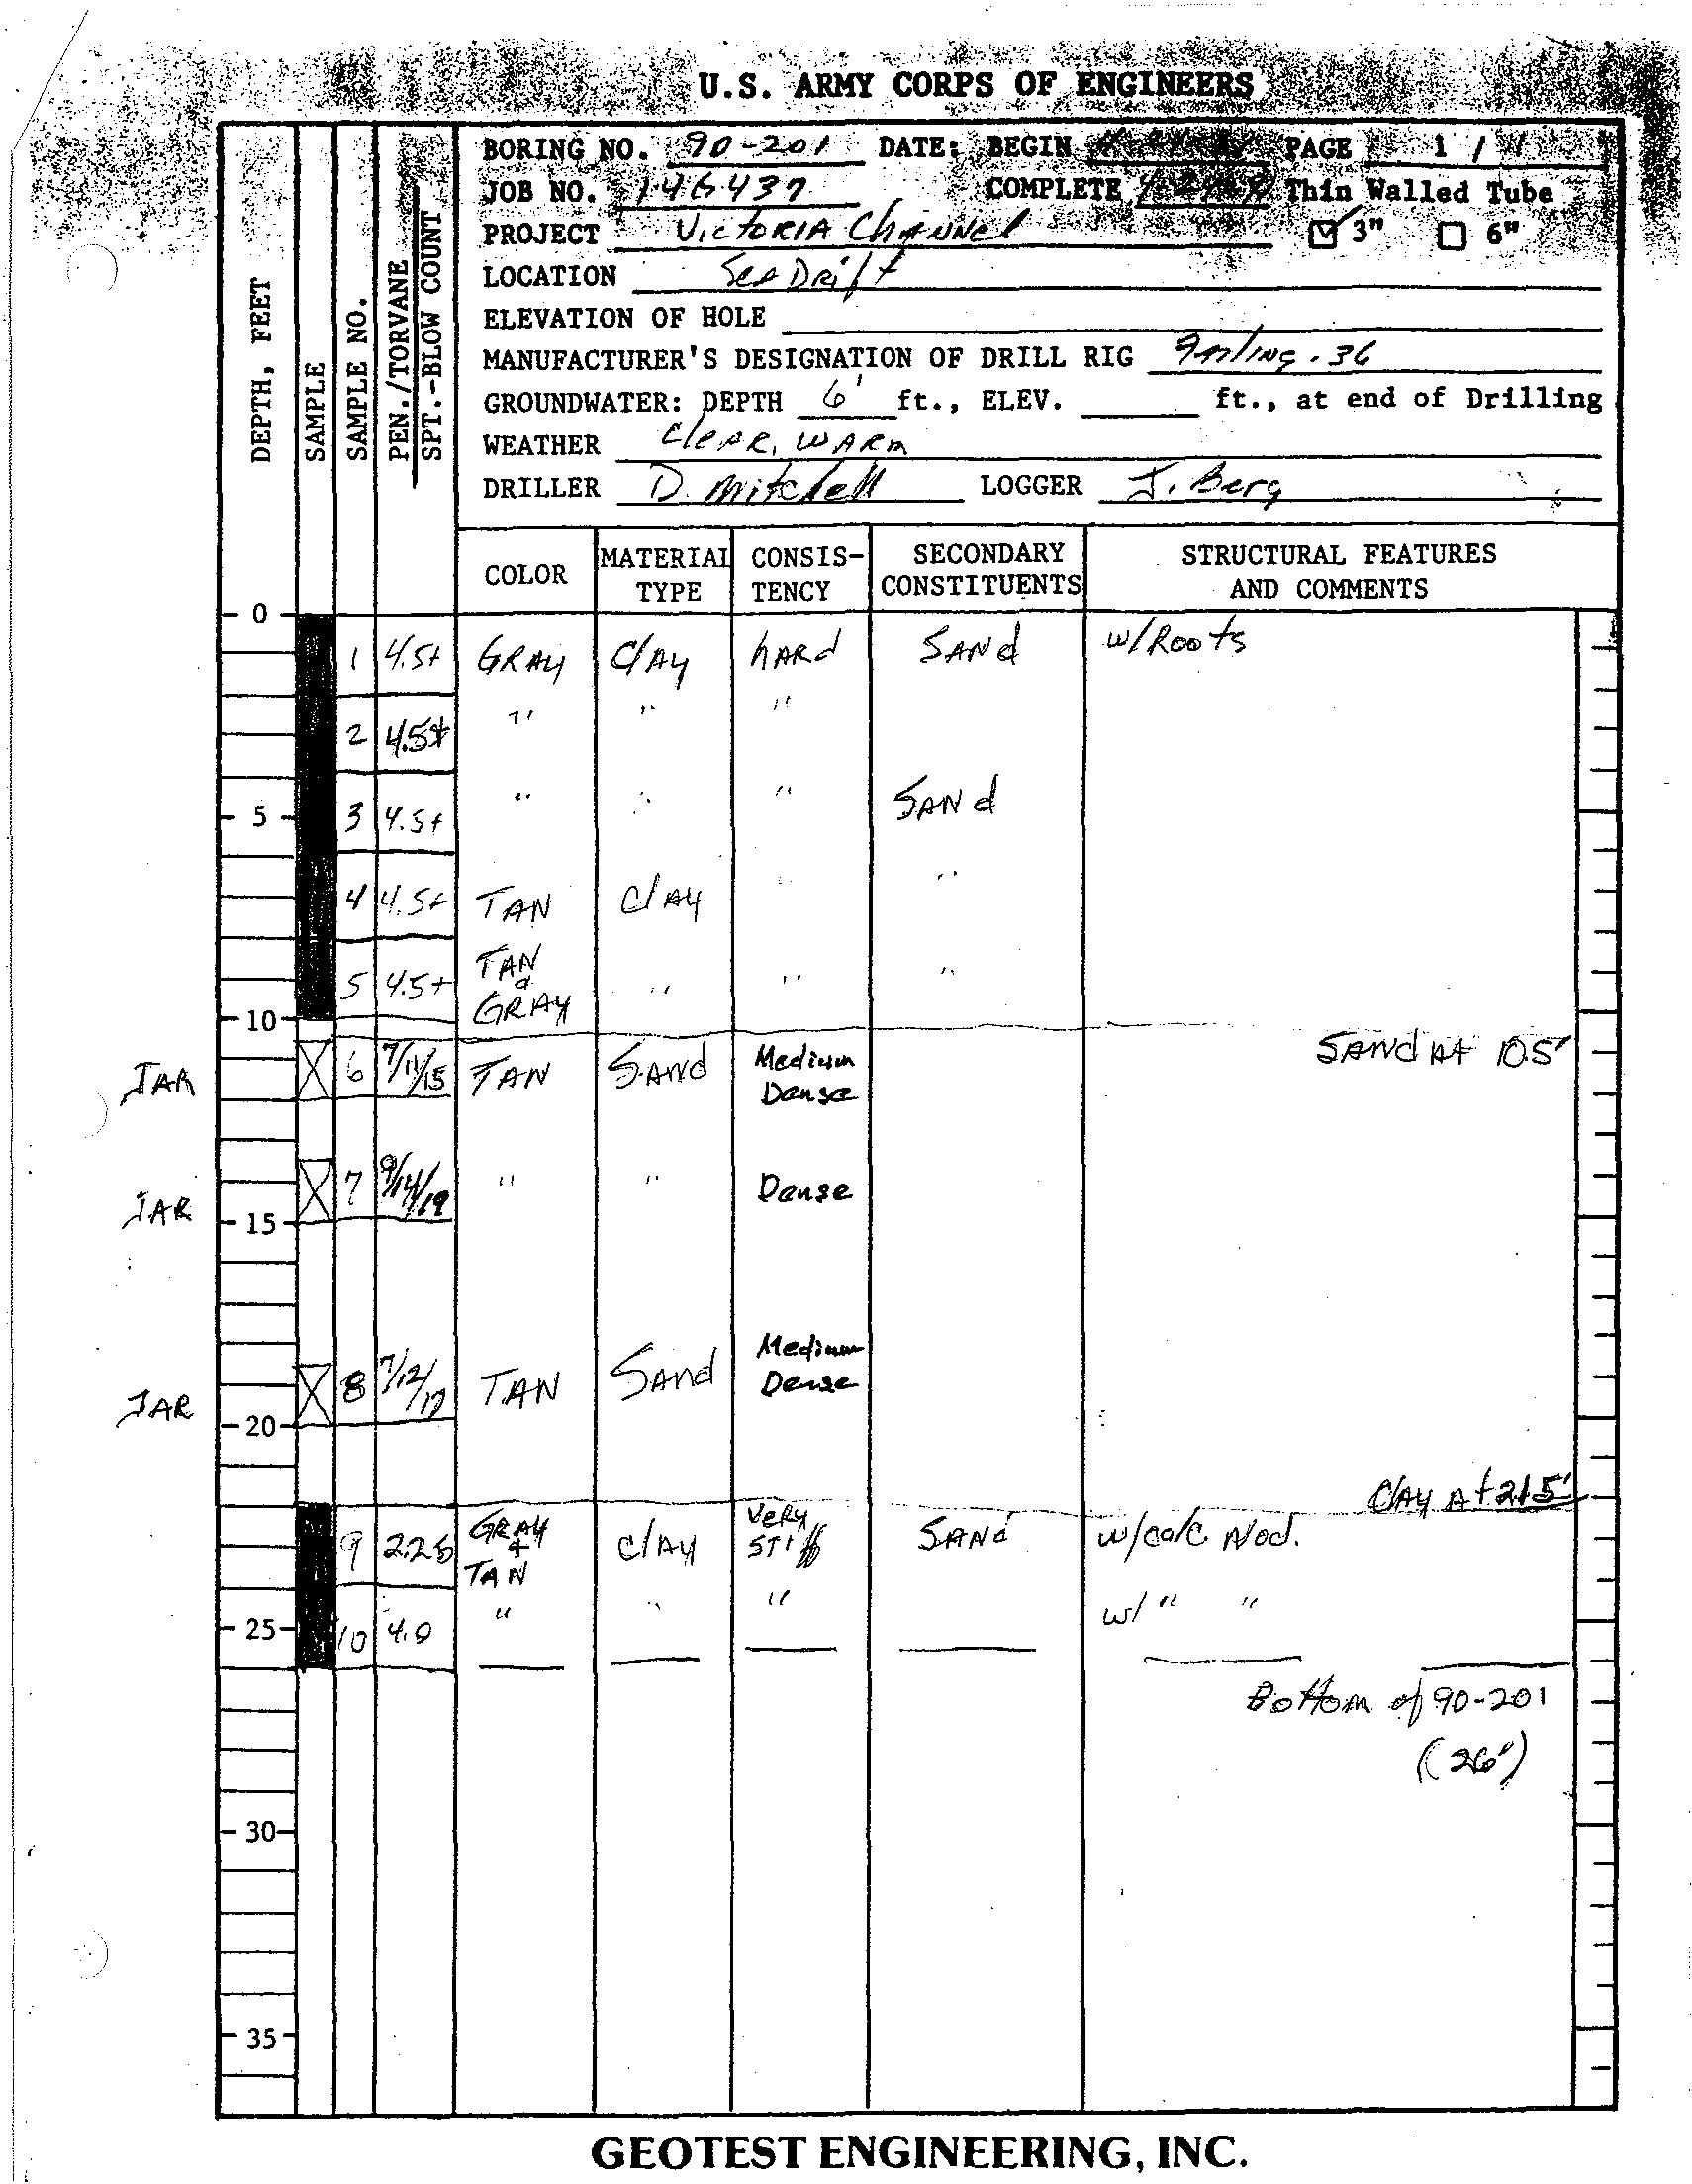 U.S. ARMY CORPS OF ENGINEERS
DEPTH, FEET
SAMPLE
SAMPLE NO.
PEN./TORVANE
SPT.-BLOW COUNT
BORING NO. 90-201 DATE: BEGIN PAGE 1 / 1
JOB NO. 146437 COMPLETE Thin Walled Tube
PROJECT VICTORIA ChANNel 3" 6"
LOCATION SeaDrift
ELEVATION OF HOLE
MANUFACTURER'S DESIGNATION OF DRILL RIG Failing. 36
GROUNDWATER: DEPTH 6' ft., ELEV. ft., at end of Drilling
WEATHER CleAR, WARm
DRILLER D. Mitchell LOGGER J. Berg
COLOR MATERIAL TYPE CONSIS-TENCY SECONDARY CONSTITUENTS STRUCTURAL FEATURES AND COMMENTS
0
1 4.5+ GRAY ClAY hARd SANd w/Roots
2 4.5+ " " "
5 3 4.5+ " " " SANd
4 4.5+ TAN ClAY " "
5 4.5+ TAN & GRAY " " "
10
SANd At 10.5'
JAR 6 7/11/15 TAN SANd Medium Dense
JAR 7 9/14/19 " " Dense
15
JAR 8 7/12/17 TAN SANd Medium Dense
20
ClAY At 21.5'
9 2.25 GRAY & TAN ClAY VeRy STiff SANd w/calc Nod.
25 10 4.0 " " " w/ " "
Bottom of 90-201
(26')
30
35
GEOTEST ENGINEERING, INC.